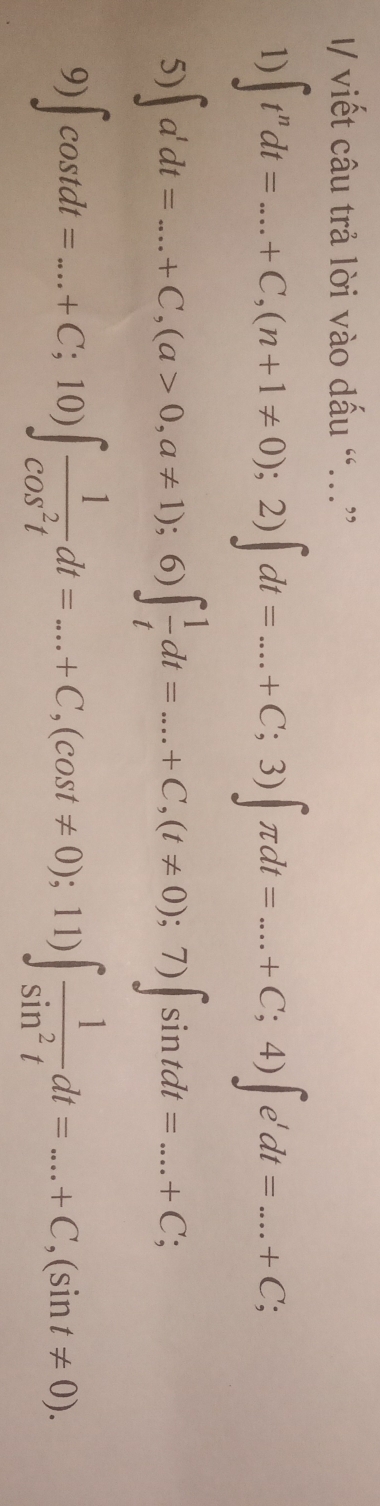 I/ viết câu trả lời vào dấu “…”
1) ∫ tⁿ dt = .... + C, (n + 1 ≠ 0); 2) ∫ dt = .... + C; 3) ∫ π dt = .... + C; 4) ∫ eᵗ dt = .... + C;
5) ∫ aᵗ dt = .... + C, (a > 0, a ≠ 1); 6) ∫ 1/t dt = .... + C, (t ≠ 0); 7) ∫ sin t dt = .... + C;
9) ∫ cos t dt = .... + C; 10) ∫ 1/cos²t dt = .... + C, (cos t ≠ 0); 11) ∫ 1/sin²t dt = .... + C, (sin t ≠ 0).